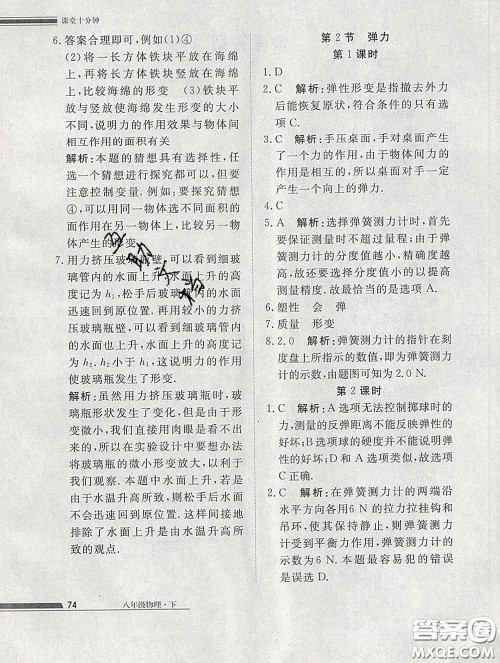 课堂十分钟
6. 答案合理即可,例如(1)④
(2)将一长方体铁块平放在海绵
上,再将长方体铁块竖放在海绵
上,比较海绵的形变 (3)铁块平
放与竖放使海绵发生形变的大小
不同,说明力的作用效果与物体间
相互作用的面积有关
解析:本题的猜想具有选择性,任
选一个猜想进行探究都可以,但要
注意控制变量.例如:要探究猜想
④,可以用同一物体选不同面积的
面作用在另一物体上,比较另一物
体产生的形变.
7. 用力挤压玻璃瓶壁,可以看到细玻
璃管内的水面上升,水面上升的高
度记为h₁,松手后玻璃管内的水面
迅速回到原位置.再用较小的力挤
压玻璃瓶壁,可以看到细玻璃管内
的水面又上升,水面上升的高度记
为h₂,h₂小于h₁,这说明力的作用
使玻璃瓶发生了形变.
解析:虽然用力挤压玻璃瓶时,玻
璃瓶形状发生了变化,但是由于形
变微小,我们直接用肉眼是看不出
来的,所以在实验设计中要想办法
将玻璃瓶的微小形变放大,以利于
我们观察.本题中还要注意,若是
由于水温升高所致,则松手后水面
不会迅速回到原位置.这样间接地
排除了水面上升是由水温升高所
致的观点.
74 八年级物理·下
第2节 弹力
第1课时
1. D
2. C 解析:弹性形变是指撤去外力
后能恢复原状,符合条件的只有选
项C.
3. C 解析:手压桌面,手对桌面产生
了一个力的作用,由于物体间力的
作用是相互的,所以桌面对手一定
产生一个向上的弹力.
4. C
5. A 解析:选择弹簧测力计时,首先
要保证测量时不超过量程;由于弹
簧测力计的分度值越小,精度越
高,因此要选择分度值小的以提高
测量精度.故最恰当的是选项A.
6. 塑性 会 弹
7. 质量 形变
8. 2.0 解析:弹簧测力计的指针在
刻度盘上所指示的数值,即为弹簧
测力计的示数,由题图可知为2.0 N.
第2课时
1. C 解析:A选项无法控制掷球时的
力,测量的反弹距离不能反映弹性
的好坏;B选项球的硬度并不能说明
弹性的好坏;D和A选项类似.故选
项C正确.
2. C 解析:在弹簧测力计的两端沿
水平方向各用6 N的拉力拉挂钩
和吊环,使其保持静止,则弹簧测
力计的示数为6 N,而不是两者的
和12 N.本题最容易犯的错误是
误选D.
MXQE.COM